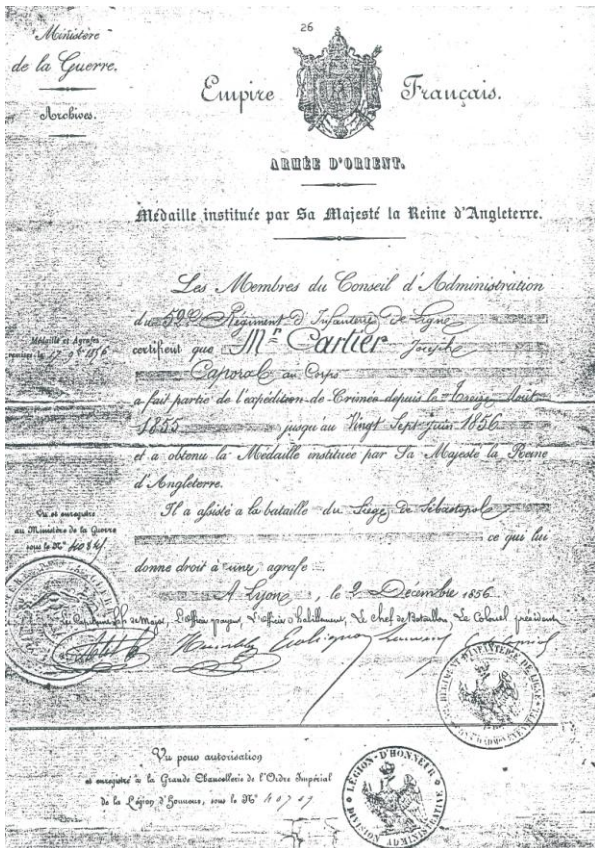 26
Ministère
de la Guerre.
Archives.
Empire Français.
ARMÉE D'ORIENT.
Médaille instituée par Sa Majesté la Reine d'Angleterre.
Les Membres du Conseil d'Administration
du 52e Régiment d'Infanterie de Ligne
certifient que Mr Cartier Joseph
Caporal au Corps
a fait partie de l'expédition de Crimée depuis le Treize Août
1855 jusqu'au Vingt Sept Juin 1856
et a obtenu la Médaille instituée par Sa Majesté la Reine
d'Angleterre.
Il a assisté à la bataille du Siège de Sébastopol
ce qui lui
donne droit à une agrafe
A Lyon, le 2 Décembre 1856
Médaille et Agrafes
remises le 17 1856
Vu et enregistré
au Ministère de la Guerre
sous le No
Major, L'officier payeur, L'officier d'habillement, Le Chef de Bataillon, Le Colonel président
RÉGIMENT D'INFANTERIE DE LIGNE
Vu pour autorisation
et enregistré à la Grande Chancellerie de l'Ordre Impérial
de la Légion d'Honneur, sous le No 40707
LÉGION D'HONNEUR
DIVISION ADMINISTRATIVE